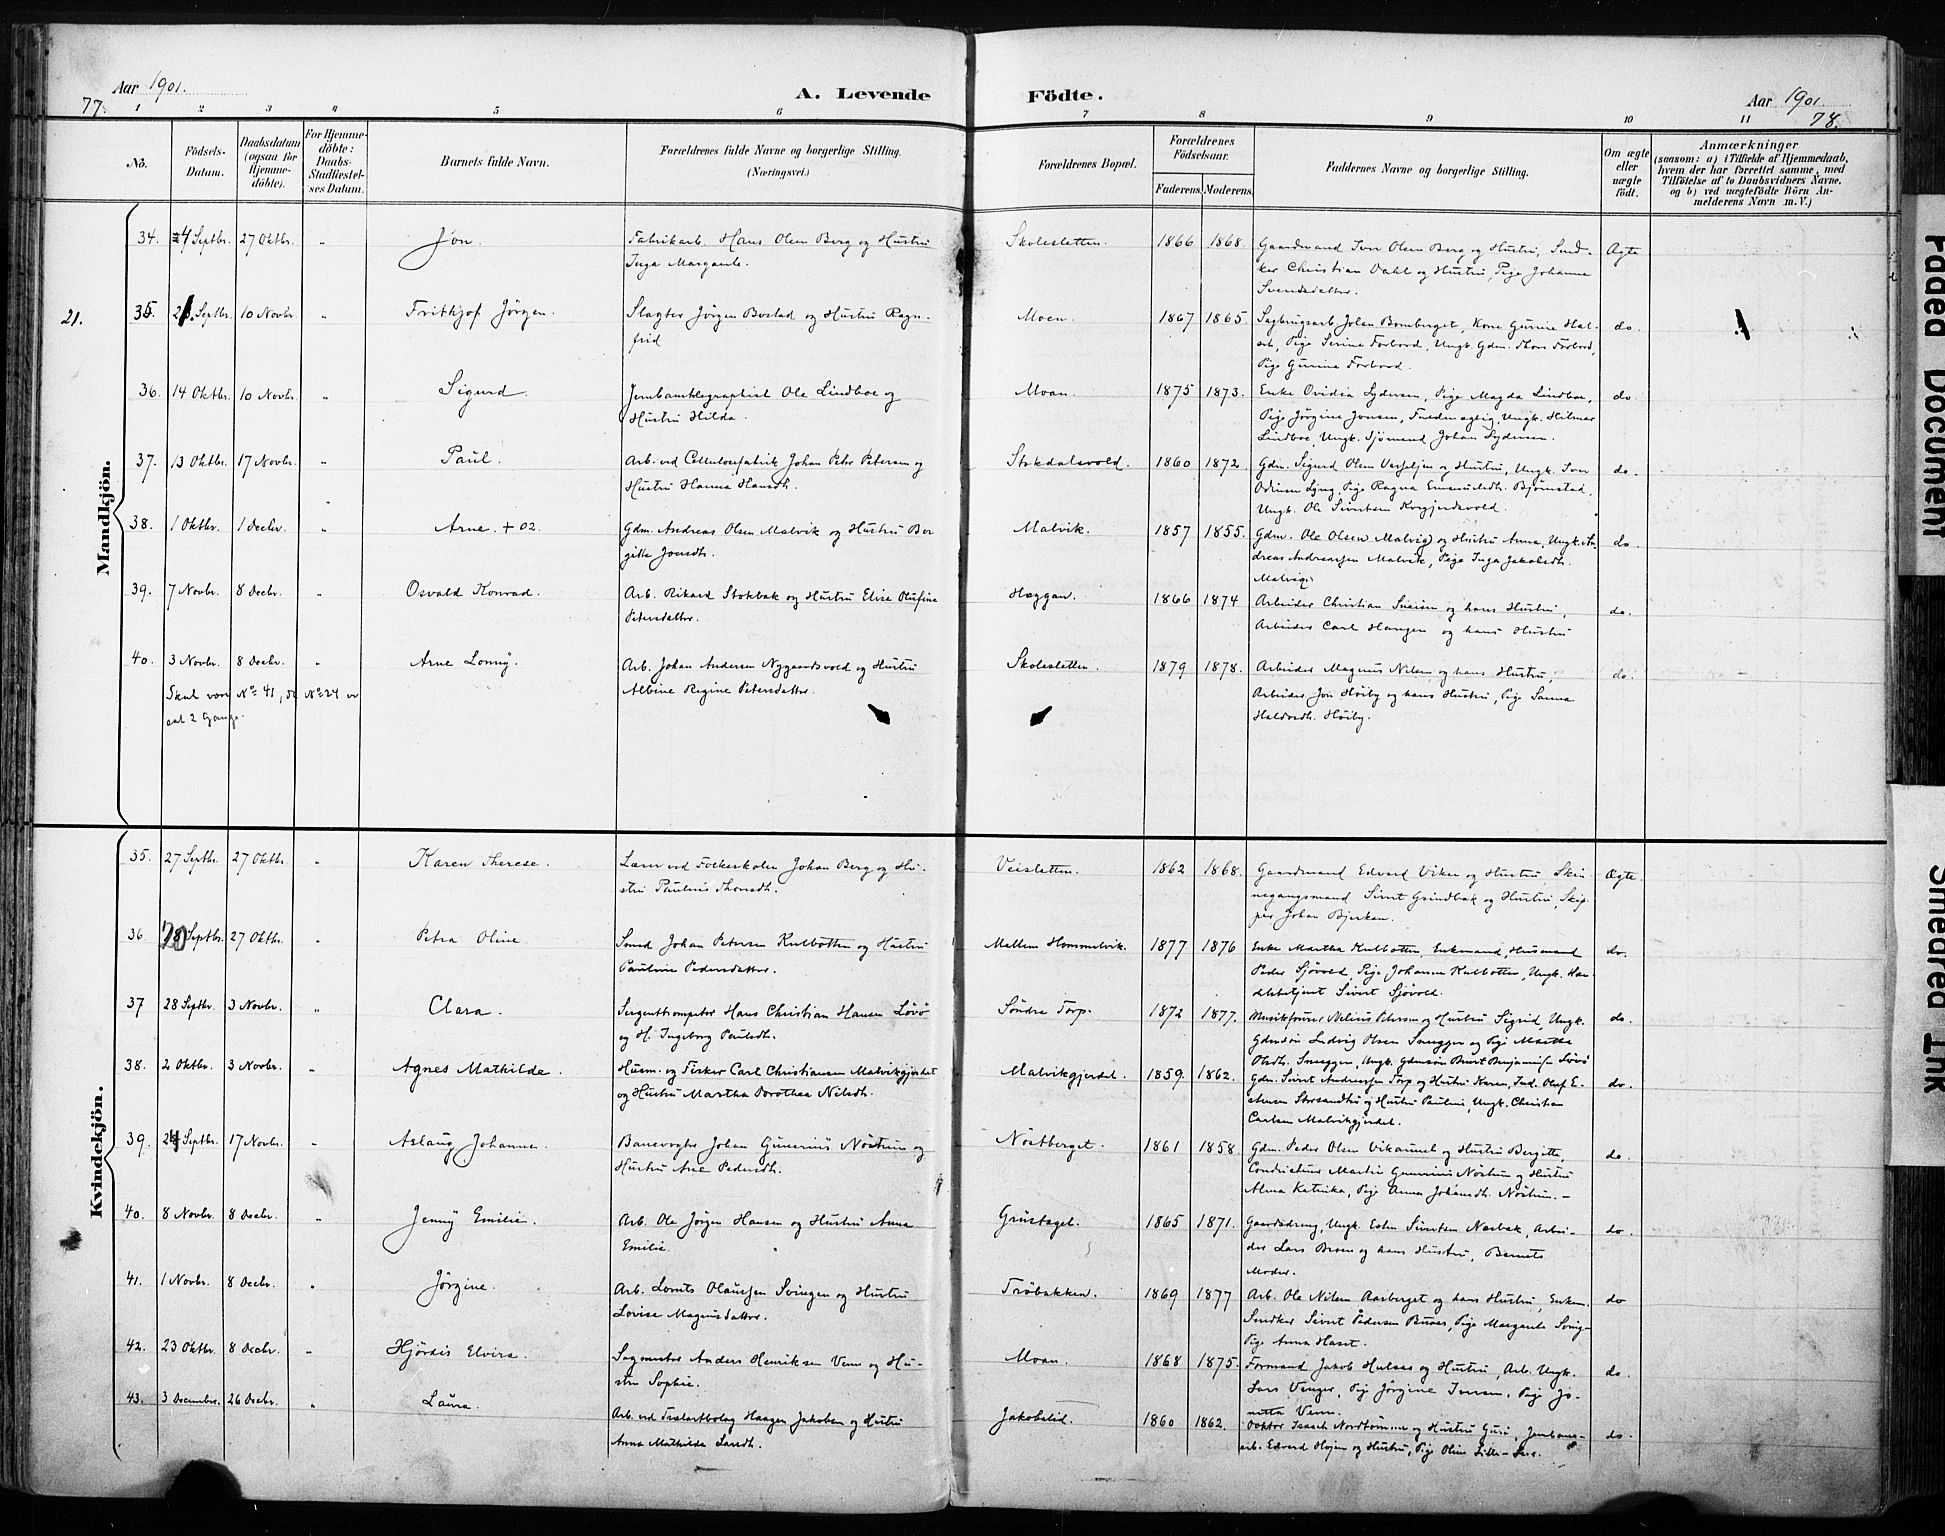 Aar 1901.
77.
A. Levende
Födte.
Aar 1901.
78.
1 2 3 4 5 6 7 8 9 10 11
No.
Födsels-Datum.
Daabsdatum (ogsaa for Hjemmedöbte).
For Hjemmedöbte: Daabs-Stadfæstelses Datum.
Barnets fulde Navn.
Forældrenes fulde Navne og borgerlige Stilling. (Næringsvei.)
Forældrenes Bopæl.
Forældrenes Födselsaar.
Faderens. Moderens.
Faddernes Navne og borgerlige Stilling.
Om ægte eller uægte födt.
Anmærkninger
(saasom: a) i Tilfælde af Hjemmedaab, hvem der har forrettet samme, med Tilföielse af to Daabsvidners Navne, og b) ved uægtefödte Börn Anmelderens Navn m. V.)
Mandkjön.
34. 4 Septbr. 27 Oktbr. " Jon. Fabrikarb. Hans Olsen Berg og Hustru
Inga Margrete.
Skolesletten. 1866 1868. Gaardmand Iver Olsen Berg og Hustru, Snedker Christian Dahl og Hustru, Pige Johanna
Svendsdatter.
Ægte
21.
35. Septbr. 10 Novbr. " Frithjof Jörgen. Slagter Jörgen Bostad og Hustru Ragnfrid
Moen. 1867 1865. Sagbrugsarb. Johan Bomberget, Kone Gurine
Pige Serine Forbord, Ungk. Gdm. Thore Forbord,
Pige Gurine Forbord.
do.
36. 14 Oktbr. 10 Novbr. " Sigurd. Jernbanetelegraphist Ole Lindboe og
Hustru Hilda.
Moan. 1875 1873. Enke Ovidia Lydersen, Pige Magda Lindboe,
Pige Jörgine Jonsen, Ungk. Hilmar
Lindboe, Ungk. Sjömand Johan Lydersen.
do.
37. 13 Oktbr. 17 Novbr. " Paul. Arb. ved Cellulosefabrik Johan Peter Petersen og
Hustru Hanna Hansdtr.
Stokdalsvold. 1860 1872. Gdm. Sigurd Olsen og Hustru, Ungk. Iver
Odinsen Ljung, Pige Ragna Bjørnstad,
Ungk. Ole Sivertsen
do.
38. 1 Oktbr. 1 Decbr. " Arne. + 02. Gdm. Andreas Olsen Malvik og Hustru Bergitte Joensdtr.
Malvik. 1857 1855. Gdm. Ole Olsen Malvig og Hustru Anna, Ungk. Andreas Andreassen Malvik, Pige Inga Jakobsdtr.
Malvig.
do.
39. 7 Novbr. 8 Decbr. " Osvald Konrad. Arb. Rikard Stokbak og Hustru Elise Olufine
Petersdatter.
Hæggan. 1866 1874 Arbeider Christian og hans Hustru,
Arbeider Carl Haugen og hans Hustru
do.
40. 3 Novbr. 8 Decbr. " Arne Lonny. Arb. Johan Andersen Nygaardsvold og Hustru
Albine Regine Petersdatter.
Skolesletten. 1879 1878. Arbeider Magnus Nilsen og hans Hustru,
Arbeider Jon Höiby og hans Hustru, Pige Sanna
Haldorsdtr. Höiby.
do.
Skal være No 41, da No 24 er
sat 2 Gange.
Kvindekjön.
35. 27 Septbr. 27 Oktbr. " Karen Therese. Lærer ved Folkeskolen Johan Berg og Hustru Pauline Thomsdtr.
Veisletten. 1862 1868. Gaardmand Edvard Viken og Hustru, Skinnegangsmand Sivert Grindbak og Hustru, Skipper Johan Bjerkan.
Ægte.
36. 20 Septbr. 27 Oktbr. " Petra Oline. Smed Johan Petersen Kulbotten og Hustru
Pauline Pedersdatter.
Mellem Hommelvik. 1877 1876 Enke Martha Kulbotten, Enkemand, Husmand
Peder Sjövold, Pige Johanna Kulbotten, Ungk. Handelsbetjent Sivert Sjövold.
do.
37 28 Septbr. 3 Novbr. " Clara. Sergenttrompeter Hans Christian Hansen Lövö
og H. Ingeborg Paulsdtr.
Söndre Torp. 1872 1877. Musikfourer Nelius Petersen og Hustru Sigrid, Ungk.
Gdmsön Ludvig Olsen Snuggen og Pige Marette
Olsdtr. Snuggen, Ungk. Gdmsön
do.
38. 2 Oktbr. 3 Novbr. " Agnes Mathilde. Husm. og Fisker Carl Christiansen Malvikgjerdet
og Hustru Martha Dorothea Nilsdtr.
Malvikgjerdet. 1859 1862. Gdm. Sivert Andreassen Torp og Hustru Karen, Ind. Olaf
Storsandhü og Hustru Pauline, Ungk. Christian
Carlsen Malvikgjerdet.
do.
39. 24 Septbr. 17 Novbr. " Aslaug Johanne. Banevogter Johan Gunerius Nöstrum og
Hustru Ane Pedersdtr.
Nöstberget. 1861 1858 Gdm. Peder Olsen Vikaunet og Hustru Bergitte,
Conducteur Martin Gunerius Nöstrum og Hustru
Alma Katrika, Pige Anna Johansdtr. Nöstrum. –
do.
40. 8 Novbr. 8 Decbr. " Jenny Emilie. Arb. Ole Jörgen Hansen og Hustru Anna
Emilie.
Grustaget. 1865 1871. Gaardsdreng, Ungk. Esten Sivertsen Næsbak, Arbeider Lars Broen og hans Hustru, Barnets
Moder.
do
41. 1 Novbr. 8 Decbr. " Jörgine. Arb. Lornts Olaussen Svingen og Hustru
Lovise Magnusdatter.
Tröbakken. 1869 1877 Arb. Ole Nilsen Aasberget og hans Hustru, Enkem.
Snedker Sivert Pedersen Buaas, Pige Margrete
Pige Anna Haset.
do
42. 23 Oktbr. 8 Decbr. " Hjördis Elvira. Sagmester Anders Henriksen Venn og Hustru Sophie.
Moan. 1868 1875. Formand Jakob Hulaas og Hustru, Arb. Ungk.
Lars Venger, Pige Jörgine Iversen, Pige
Venn.
do.
43. 3 December. 26 Decbr. " Laura. Arb. ved Trælastbolag Haagen Jakobsen og Hustru
Anna Mathilde Larsdtr.
Jakobslid. 1860 1862. Doktor Isaach Nordtömme og Hustru Guri, Jernbanearb. Edvard Hojem og Hustru, Pige Oline Lille-
do.
Faded Document
Smeared Ink